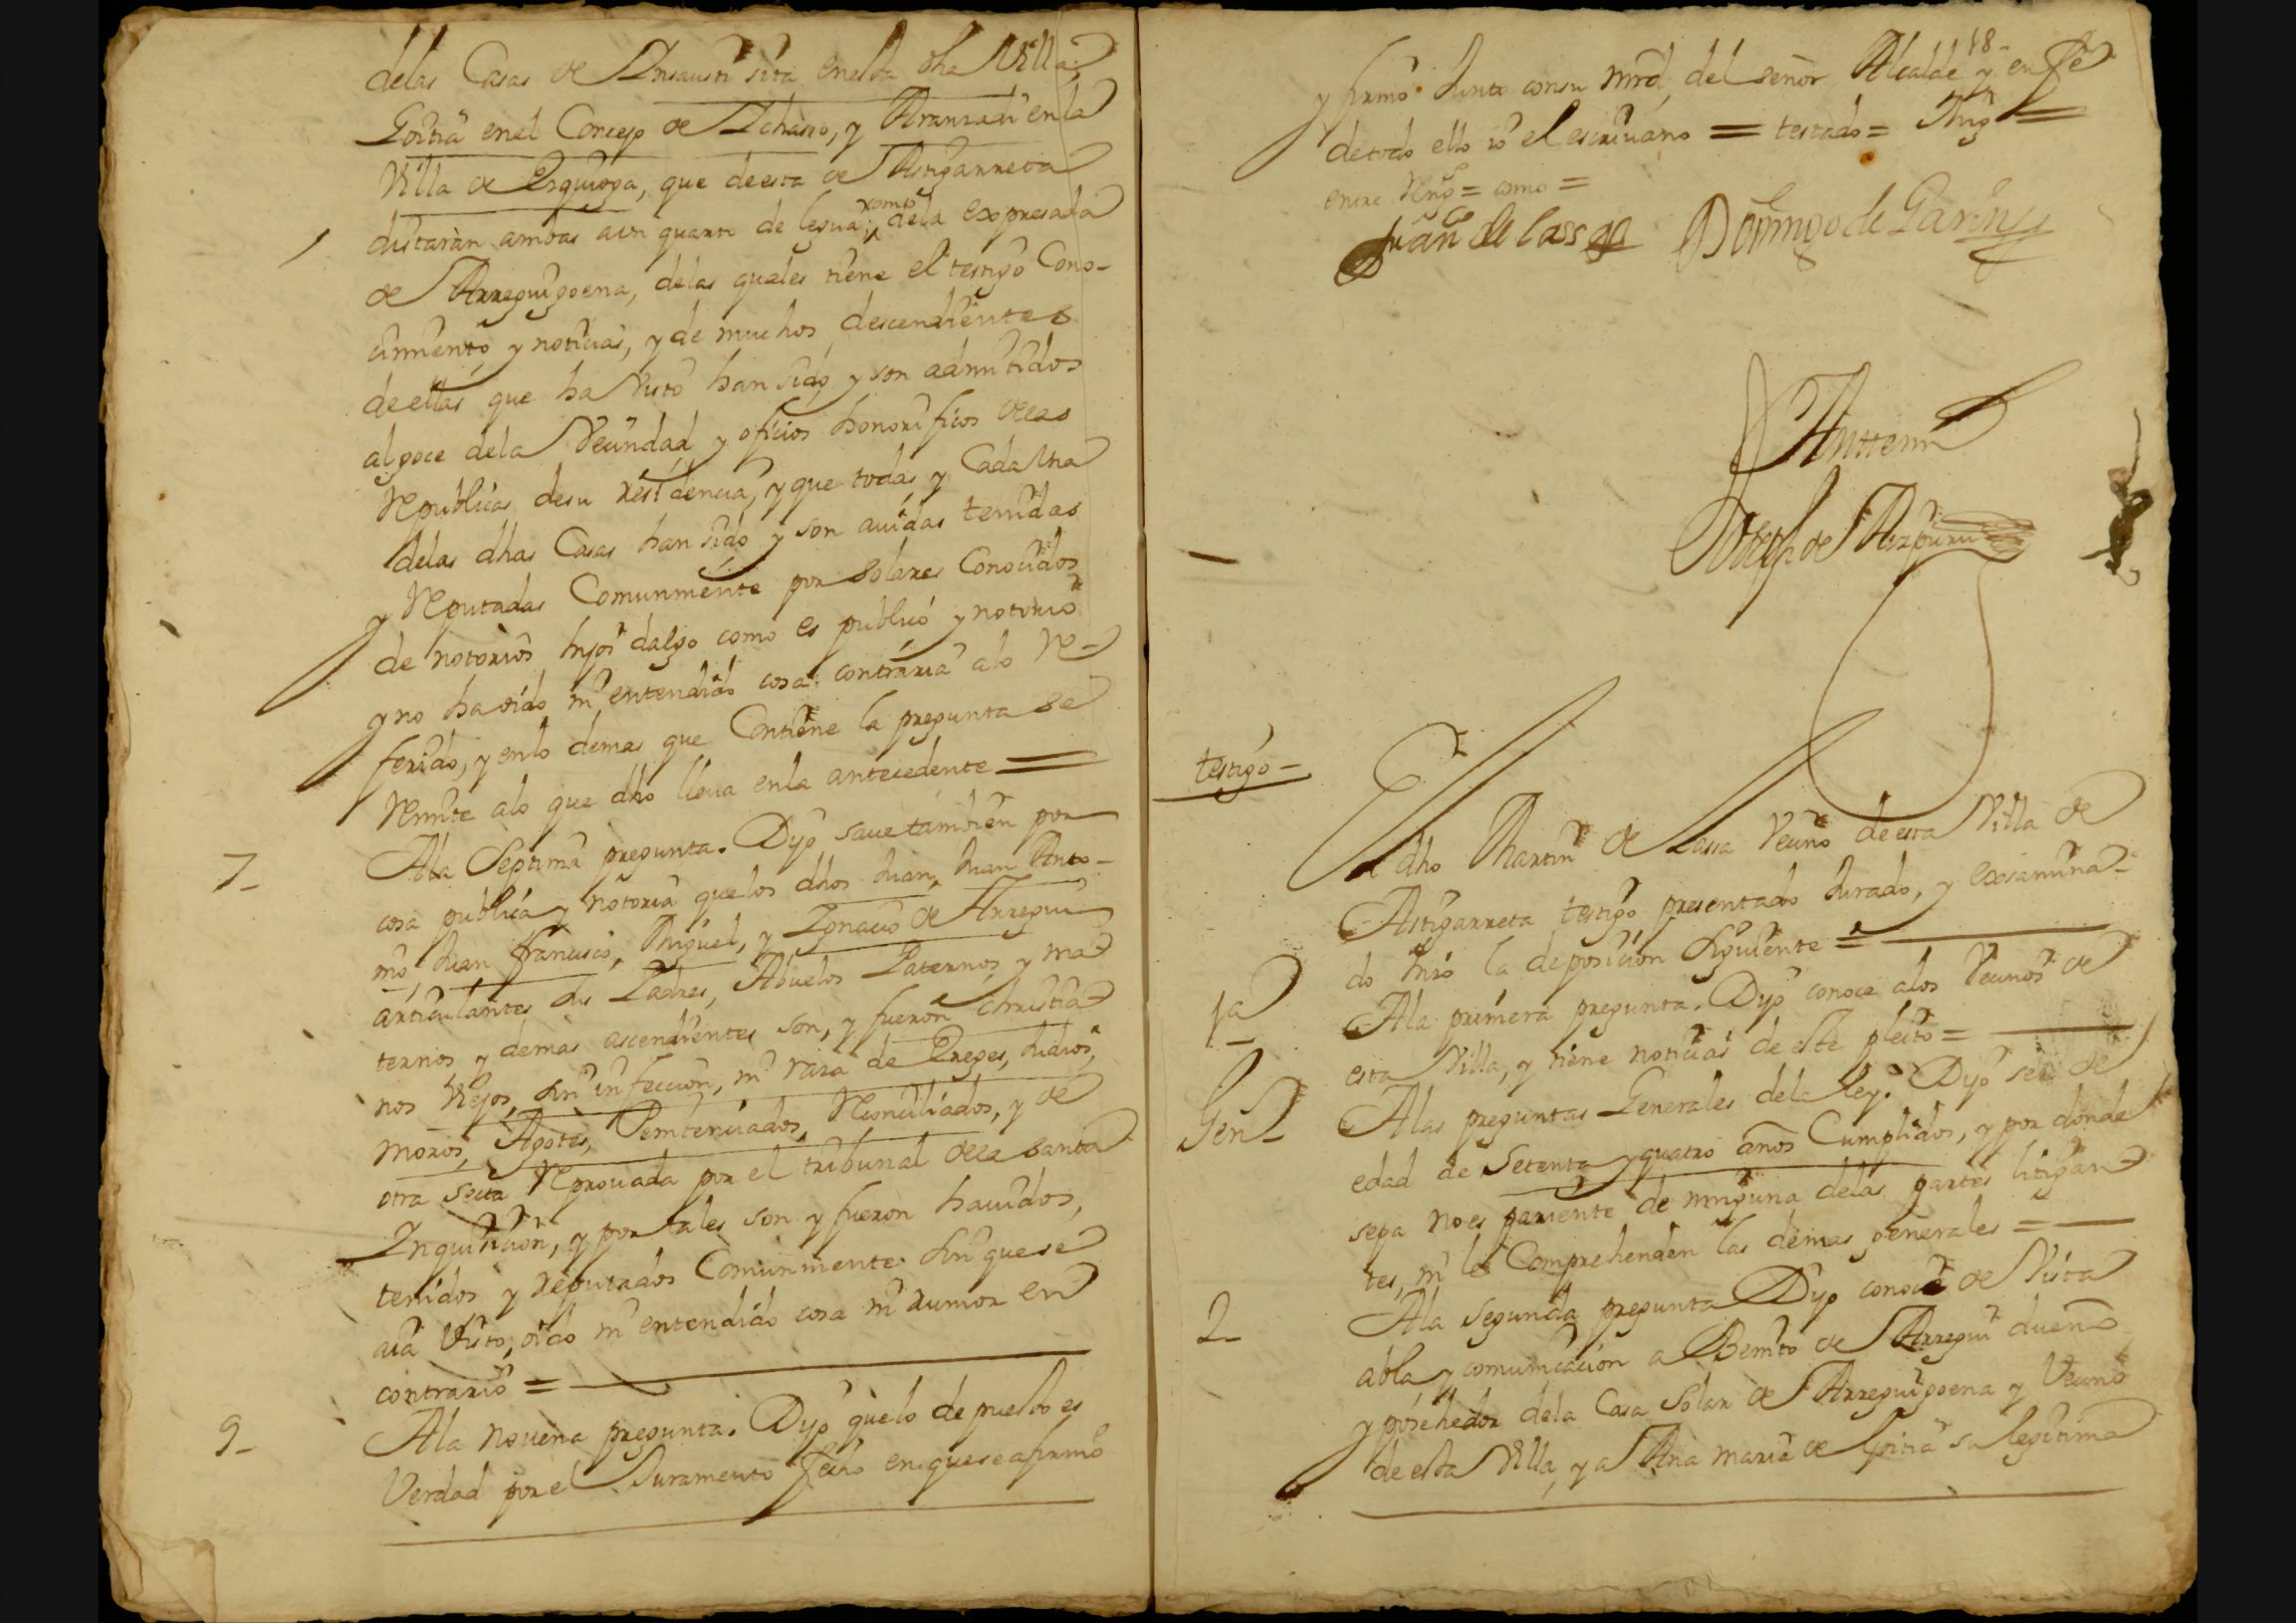 delas Casas de Insausti sita enesta dha Villa,
Goitia enel Concejo de Ichasso, y Aranzadi en la
Villa de Ezquioga, que de esta de Astigarreta
distaràn ambas aun quarto de legua, como dela expresada
de Arreguigoena, delas quales tiene el testigo Cono-
cimiento, y noticias, y de muchos descendientes
de ellas que ha visto han sido, y son admitidos
al goce dela Vecindad, y oficios honorificos delas
Republicas desu residencia, y que todas, y Cada Una
delas dhas Casas han sido, y son auidas tenidas
y Reputadas Comunmente por solares Conocidos
de notorios hijos dalgo como es publico y notorio
y no ha oido ni entendido cosa contraria alo Re-
ferido, y enlo demas que Contiene la pregunta se
Remite alo que dho lleua enla antecedente =
7_
Ala Septima pregunta. Dijo saue tambien por
cosa publica, y notoria quelos dhos Juan, Juan Anto-
nio, Juan francisco, Miguel, y Ignacio de Arregui
articulantes sus Padres, Abuelos Paternos, y ma-
ternos, y demas ascendientes son, y fueron christia-
nos Viejos, sin infeccion, ni raza de Ereges, Judios,
moros, Agotes, Penitenciados, Reconciliados, y de
otra secta Reprouada por el tribunal dela santa
Inquisicion, y por tales son y fueron hauidos,
tenidos y reputados Comunmente sin que se
aia Visto, oido ni entendido cosa ni rumor en
contrario =
9_
Ala novena pregunta. Dijo quelo depuesto es
Verdad por el Juramento fecho enque se afirmó
18_
y firmò Junto consu mrd, del señor Alcalde y en fee
de todo ello io el escriuano = testado = Ang =
entre Reng = como =
Juan de lassa Domingo de Garin
Antemi
Joseph de Aizpuru
testigo_
El dho Martin de Lassa Vecino de esta Villa de
Astigarreta testigo presentado Jurado, y examina-
do hizo la deposicion Siguiente =
1ª
Ala primera pregunta. Dijo conoce alos Vecinos de
esta Villa, y tiene noticias de este pleito =
Gen_
Alas preguntas Generales dela Ley. Dijo ser de
edad de Setenta y quatro años Cumplidos, y por donde
sepa no es pariente de ninguna delas partes litigan-
tes, ni le Comprehenden las demas generales =
2_
Ala segunda pregunta Dijo conoce de Vista
abla, y comunicacion a Benito de Arregui dueño
y posehedor dela Casa Solar de Arreguigoena y Vecino
de esta Villa, y a Ana maria de Goitia su legitima